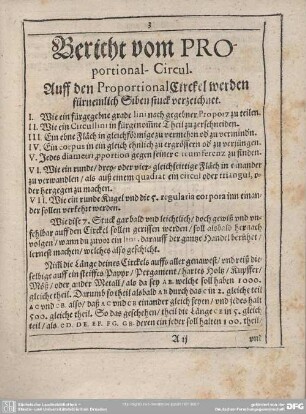 3
Bericht vom PRO-
portional- Circul.
Auff den Proportional Circkel werden
fürnemlich Siben stuck verzeichnet.
I. Wie ein fürgegebne grade lini nach gegebner Proporz zu teilen.
II. Wie ein Circullini in fürgenom̃ne Theil zuzerschneiden.
III. Ein eine Fläch in gleichförmige zu vermehen od zu vermindn.
IV. Ein corpus in ein gleich ähnlich zu ergrössern od zu verjüngen.
V. Jedes diametri proportion gegen seiner circumferenz zu finden.
VI. Wie ein runde/ drey- oder vier- gleichseitige Fläch in einander
zu verwandlen / als auß einem quadrat ein circul oder triangul, o-
der hergegen zu machen.
VII. Wie ein runde Kugel und die 5. regularia corpora inn einan-
der sollen verkehrt werden.
Wie dise 7. Stuck gar bald und leichtlich/ doch gewiß und un-
fehlbar auff den Circkel sollen gerissen werden / soll alsbald hernach
volgen / wann du zuvor ein lini, darauff der gantze Handel beruhet/
lernest machen/ welches also geschicht.
Nim̃ die Länge deines Circkels auffs aller genawest/ und reiß die-
selbige auff ein steiffes Papyr/ Pergament/ hartes Holtz/ Kupffer/
Möß/ oder ander Metall/ als da sey AB. welche soll haben 1000.
gleiche theil. Darumb so theil alsbald AB durch das C in 2. gleiche theil
AC und CB. also/ daß AC und CB einander gleich seyen/ und jedes halt
500. gleiche theil. So das geschehen/ theil die Länge CB in 5. gleich
teil/ als CD. DE. EF. FG. GB. deren ein jeder soll halten 100. theil/
A ij
und